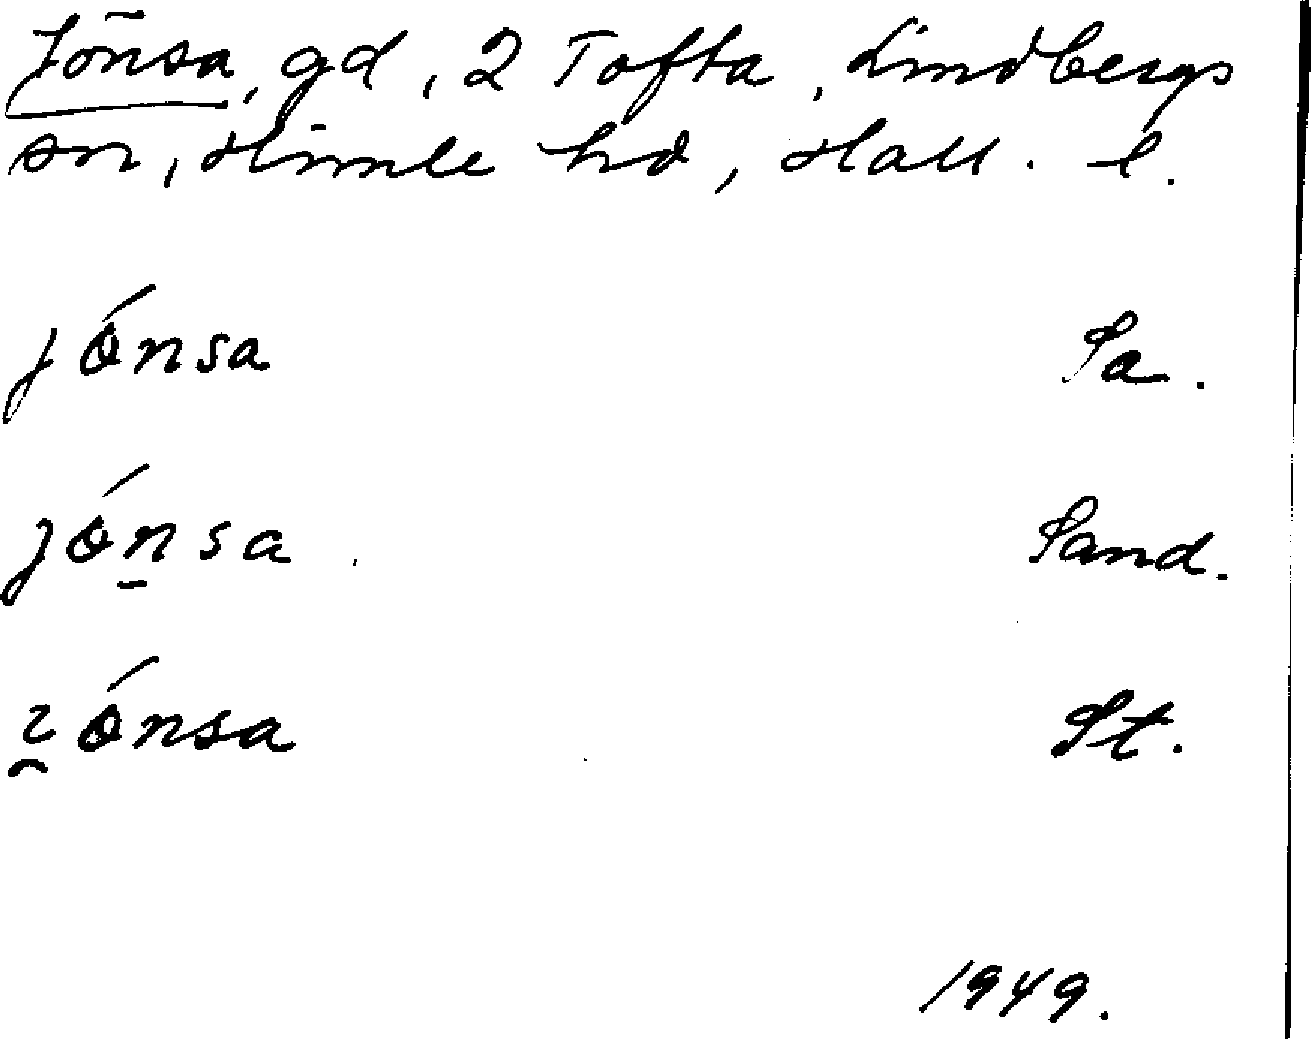 Jönsa, gd, 2 Tofta, Lindbergs
sn, Himle hd, Hall. l.
jónsa Sa.
jón̠sa Sand.
ɿ̯ónsa St.
1949.